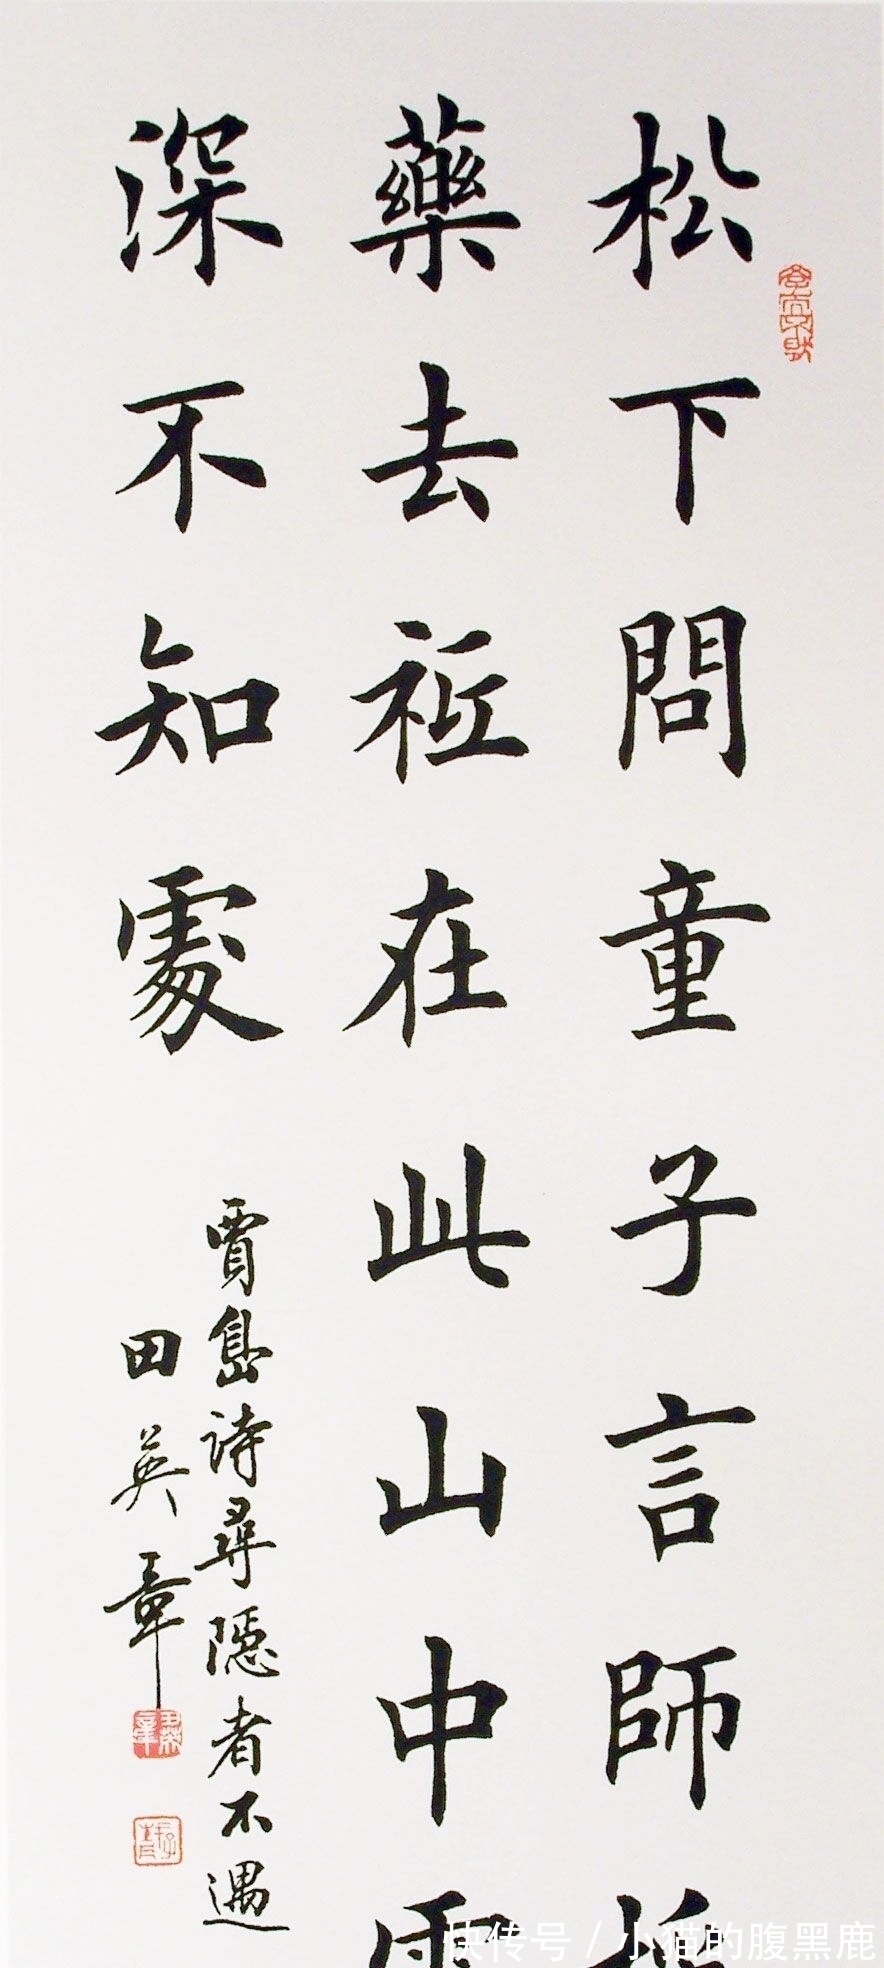 松下問童子言師
藥去祗在此山中
深不知處
賈島詩尋隱者不遇
田英章
快传号 / 小猫的腹黑鹿